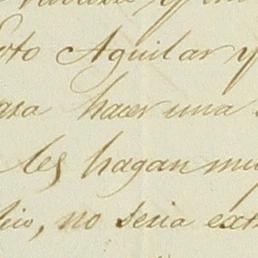 oto Aguilar y
asa hacer una
les hagan mu
licio, no seria ext